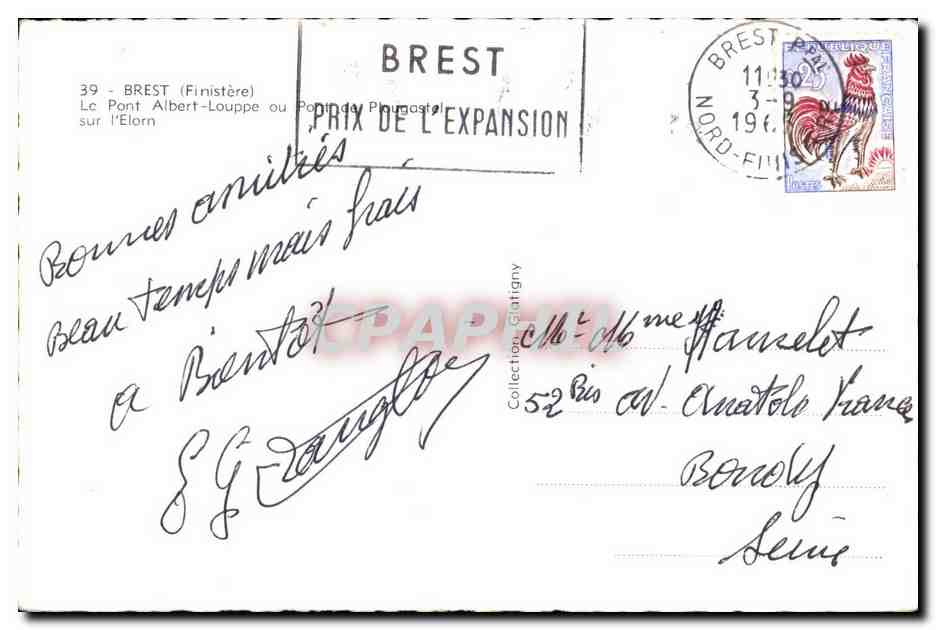 39 - BREST (Finistère)
Le Pont Albert-Louppe ou Pont de Plougastel
sur l'Elorn
BREST
PRIX DE L'EXPANSION
BREST PPAL
11H30
3-9
196
NORD-FINISTÈRE
RÉPUBLIQUE FRANÇAISE
0,25
POSTES
Bonnes amitiés
Beau temps mais frais
a Bientôt
CPAPHIL
Collection Glatigny
Mr. Mme Hanselet
52 Bis av. Anatole France
Bondy
Seine